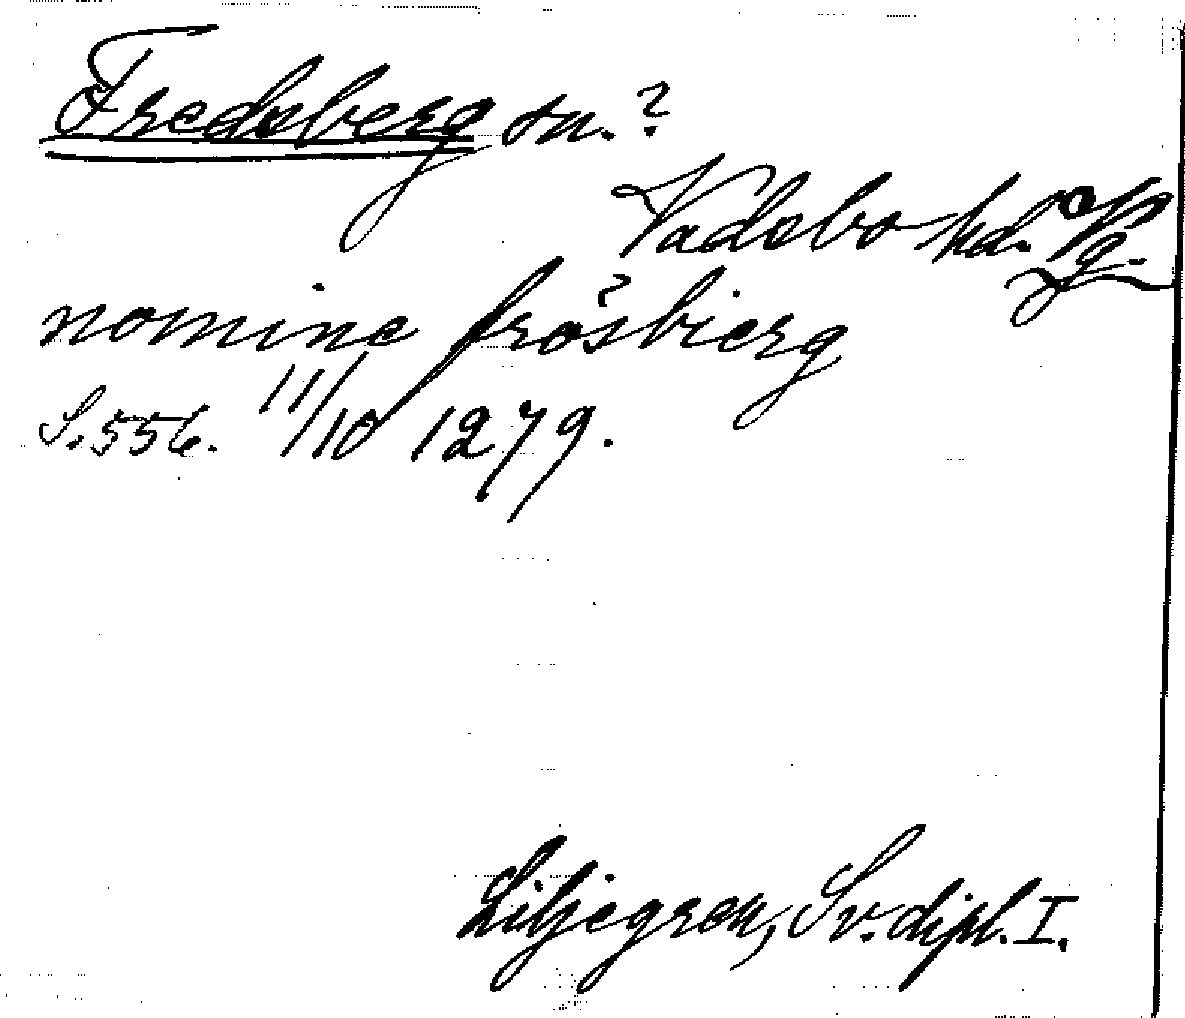 Fredsberg sn.?
Vadsbo hd. Vg.
nomine frösbierg
?
S. 556. 11/10 1279.
Liljegren, Sv. dipl. I.